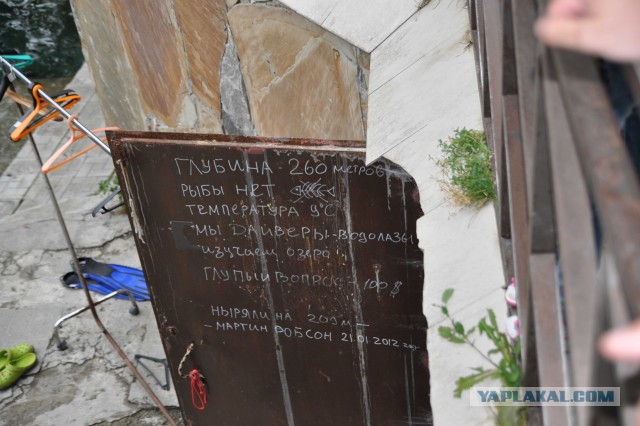 ГЛУБИНА - 260 МЕТРОВ
РЫБЫ НЕТ
ТЕМПЕРАТУРА 9°C
МЫ ДАЙВЕРЫ-ВОДОЛАЗЫ
ИЗУЧАЕМ ОЗЕРО
ГЛУПЫЙ ВОПРОС - 100 $
НЫРЯЛИ НА 209 М
- МАРТИН РОБСОН 21.01 2012
YAPLAKAL.COM